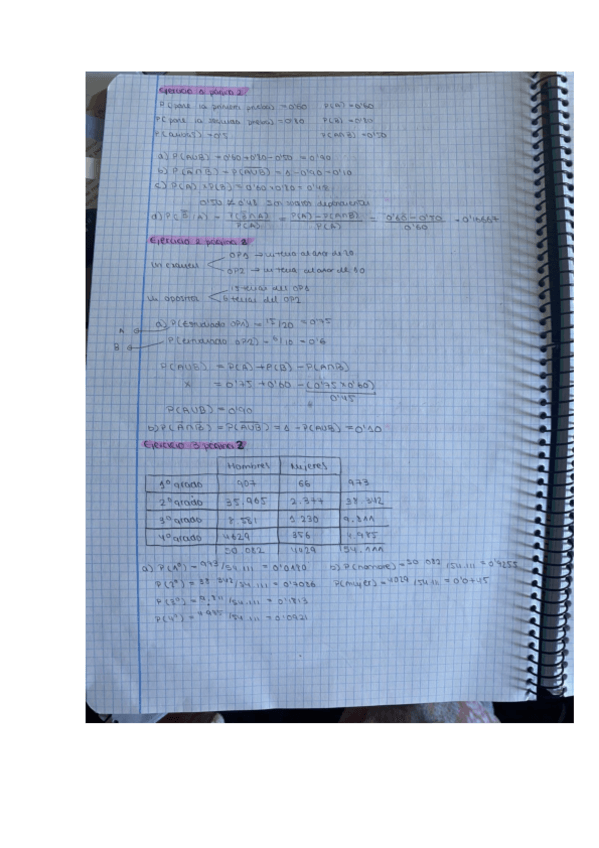 Ejercicio 1 página 2
P(pase la primera prueba) = 0'60 P(A) = 0'60
P(pase la segunda prueba) = 0'80 P(B) = 0'80
P(ambas) = 0'5 P(A∩B) = 0'50
a) P(A∪B) = 0'60 + 0'80 - 0'50 = 0'90
b) P(A̅∩B̅) = P(A∪B) = 1 - 0'90 = 0'10
c) P(A) × P(B) = 0'60 × 0'80 = 0'48
0'50 ≠ 0'48 son sucesos dependientes
d) P(B̅/A) = P(B̅∩A)/P(A) = P(A) - P(A∩B)/P(A) = 0'60 - 0'50/0'60 = 0'16667
Ejercicio 2 página 2
OP1 → un tema al azar de 20
Un examen
OP2 → un tema al azar de 10
15 temas del OP1
Un opositor
6 temas del OP2
A a) P(estudiado OP1) = 15/20 = 0'75
B P(estudiado OP2) = 6/10 = 0'6
P(A∪B) = P(A) + P(B) - P(A∩B)
x = 0'75 + 0'60 - (0'75 × 0'60)
0'45
P(A∪B) = 0'90
b) P(A̅∩B̅) = P(A∪B) = 1 - P(A∪B) = 0'10
Ejercicio 3 página 2
Hombres Mujeres
1º grado 907 66 973
2º grado 35.965 2.377 38.342
3º grado 8.581 1.230 9.811
4º grado 4629 356 4.985
50.082 4029 54.111
a) P(1º) = 973/54.111 = 0'0180 b) P(hombre) = 50.082/54.111 = 0'9255
P(2º) = 38.342/54.111 = 0'7086 P(mujer) = 4029/54.111 = 0'0745
P(3º) = 9.811/54.111 = 0'1813
P(4º) = 4.985/54.111 = 0'0921